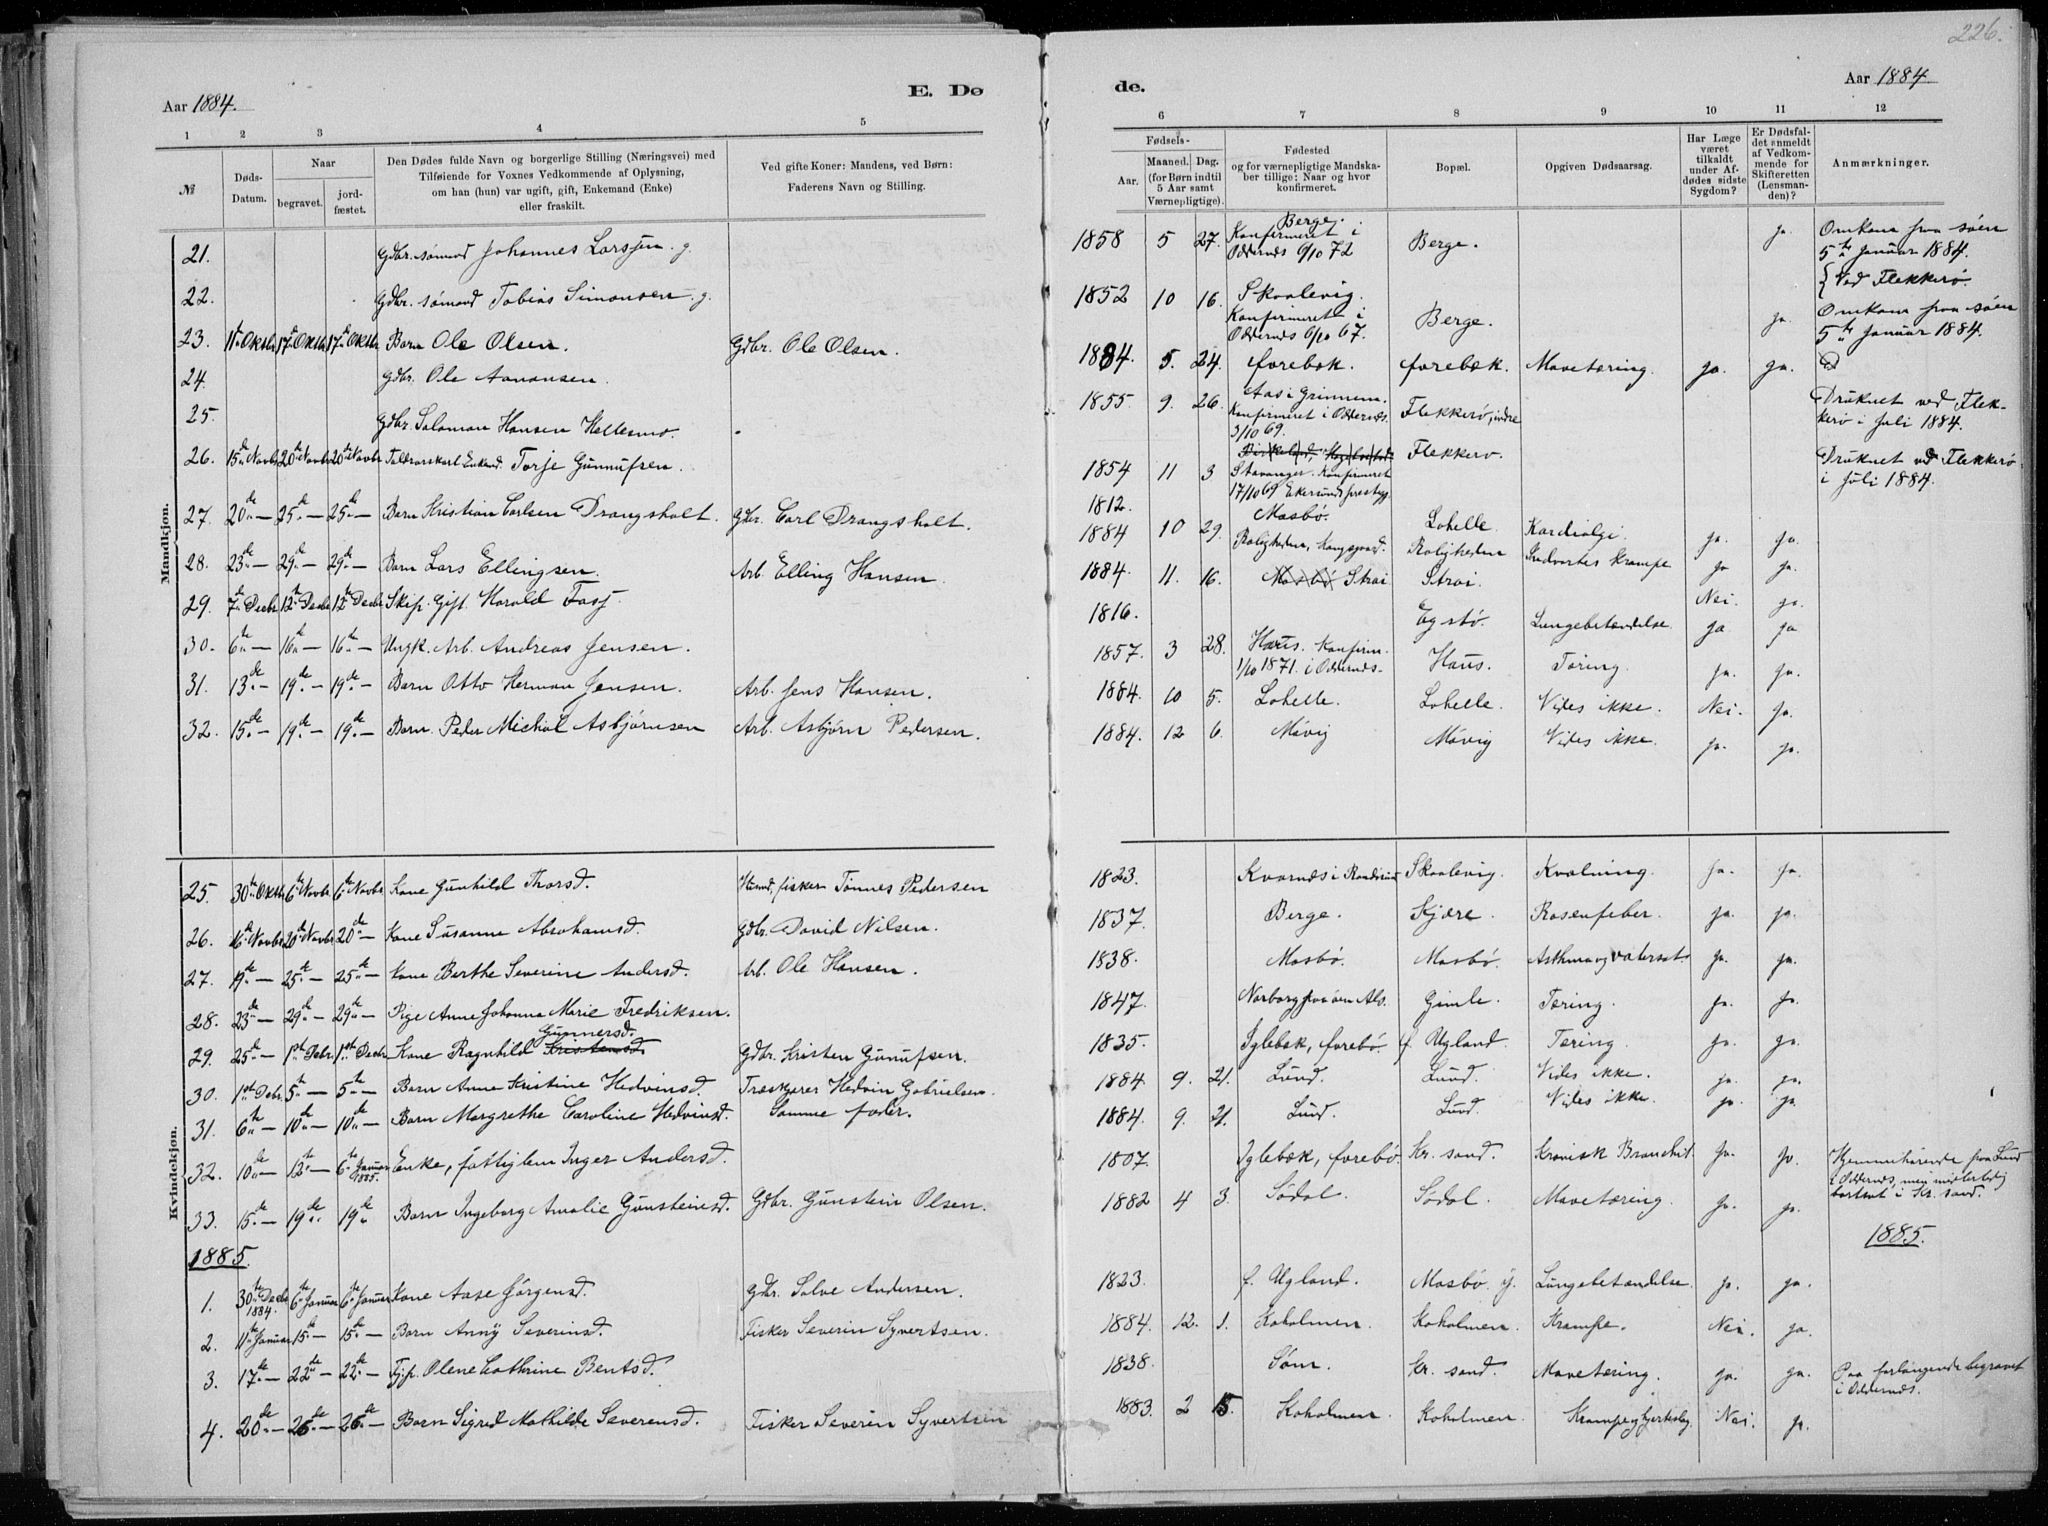 226.
Aar 1884.
E. Dø
de.
Aar 1884.
1 2 3 4 5 6 7 8 9 10 11 12
№
Døds-
Datum.
Naar
begravet.
jord-
fæstet.
Den Dødes fulde Navn og borgerlige Stilling (Næringsvei) med
Tilføiende for Voxnes Vedkommende af Oplysning,
om han (hun) var ugift, gift, Enkemand (Enke)
eller fraskilt.
Ved gifte Koner: Mandens, ved Børn:
Faderens Navn og Stilling.
Fødsels-
Aar.
Maaned. Dag.
(for Børn indtil
5 Aar samt
Værnepligtige).
Fødested
og for værnepligtige Mandska-
ber tillige: Naar og hvor
konfirmeret.
Bopæl.
Opgiven Dødsaarsag.
Har Læge
været
tilkaldt
under Af-
dødes sidste
Sygdom?
Er Dødsfal-
det anmeldt
af Vedkom-
mende for
Skifteretten
(Lensman-
den)?
Anmærkninger.
Mandkjøn.
21. Gdbr. sømand Johannes Larssen. g. 1858 5 27. Berge. Konfirmeret i Oddernæs 6/10 72 Berge. ja. Omkom fra søen 5te Januar 1884. Ved Flekkerø
22. Gdbr. sømand Tobias Simonsen. g. 1852 10 16. Skaalevig. Konfirmeret i Oddernæs 6/10 67. Berge. ja. Omkom fra søen 5te Januar 1884.
23. 11te Oktbr 17de Oktbr 17de Oktbr Barn Ole Olsen. Gdbr. Ole Olsen. 1884. 5. 24. forebæk. forebæk. Mavetæring. ja. ja.
24. Gdbr. Ole Aanonsen. 1855. 9. 26. Aas i Grinnem. Konfirmeret i Oddernæs. 3/10 69. Flekkerø, indre Druknet ved Flek-
kerø i Juli 1884.
25. Gdbr. Salomon Hansen Hellesmo. 1854 11 3 Stavanger. Konfirmeret 17/10 69 Ekersunds prestegj. Flekkerø. Druknet ved Flekkerø
i Juli 1884.
26. 15de Novbr 20de Novbr 20de Novbr. Enkemd. Torje Gunnufsen. 1812. Mosbø. Lohelle. Kardialgi. ja. ja.
27. 20de — 25de — 25de — Barn Kristian Carlsen Drangsholt. Gdbr. Carl Drangsholt. 1884 10 29. Roligheden, Kongsgaard. Roligheden Indvortes Krampe ja ja.
28. 23de — 29de — 29de — Barn Lars Ellingsen. Arb. Elling Hansen. 1884. 11. 16. Mosbø Strai Strai. Nei. ja.
29. 7de Decbr 12te Decbr 12te Decbr Skip. Gift. Harald 1816. Egstø. Lungebetændelse. ja ja
30. 6te — 16de — 16de — Ungk. Arb. Andreas Jensen. 1857. 3 28. Haus. Konfirm. 1/10 1871. i Oddernæs. Haus. Tæring. ja. ja.
31. 13de — 19de — 19de — Barn Otto Herman Jensen. Arb. Jens Hansen. 1884. 10 5. Lohelle. Lohelle. Vides ikke. Nei. ja.
32. 15de — 19de — 19de — Barn. Peder Michal Asbjørnsen Arb. Asbjørn Pedersen. 1884. 12 6. Møvig Møvig Vides ikke. ja. ja.
Kvindekjøn.
25. 30te Oktbr 6te Novbr 6te Novbr. Kone Gunhild Thorsd. Husmd, fisker Tønnes Pedersen 1823. Kvarnæs i Randøsund Skaalevig. Kvælning. ja. ja.
26. 16de Novbr 20de Novbr 20de — Kone Susanne Abrahamsd. Gdbr. David Nilsen. 1837. Berge. Kjære. Rosenfeber. ja. ja.
27. 19de — 25de — 25de — Kone Berthe Severine Andersd. Arb. Ole Hansen. 1838. Mosbø. Mosbø. Asthma og vatersot. ja. ja.
28. 23de — 29de — 29de — Pige Anne Johanna Marie Fredriksen. 1847. Norborg paa øen Als. Gimle. Tæring. ja. ja.
29. 25de — 1ste Decbr. 1ste Decbr. Kone Ragnhild Kristensd. Gunnersd. Gdbr. Kristen Gunufsen. 1835. Iglebæk, forebø. f. Ugland. Tæring. ja. ja.
30. 1ste Decbr. 5te — 5te — Barn Anne Kristine Hedvinsd. Træskjærer Hedvin Gabrielsen. 1884 9. 21. Lund. Lund. Vides ikke. ja. ja.
31. 6te — 10de — 10de — Barn Margrethe Caroline Hedvinsd. Samme fader. 1884. 9. 21. Lund. Lund. Vides ikke. ja. ja.
32. 10de — 12te — 6te Januar 1885. Enke, fattiglem Inger Andersd. 1807. Iglebæk, forebø. Kr. sand. Kronisk Bronchit. ja. ja. Hjemmehørende fra Lund
i Oddernæs, men midlertidig
bortsat i Kr. sand.
33. 15de — 19de — 19de Barn Ingeborg Amalie Gunsteinsd. Gdbr. Gunstein Olsen. 1882 4 3. Sødal. Sødal. Mavetæring. ja. ja.
1885. 1885.
1. 30te Decbr 1884. 6te Januar 6te Januar Kone Aase Jørgensd. Gdbr. Salve Andersen. 1823. f. Ugland. Mosbø. y. Lungebetændelse. ja. ja.
2. 11te Januar 15de — 15de — Barn Anny Severinsd. Fisker Severin Syvertsen. 1884. 12. 1. Koholmen. Koholmen. Krampe. Nei. ja.
3. 17de — 22de — 22de — Olene Cathrine Bentsd. 1838. Søm. Kr. sand. Mavetæring. ja. ja. Paa forlangende begravet
i Oddernæs.
4. 20de — 26de — 26de — Barn Sigrid Mathilde Severensd. Fisker Severin Syvertsen 1883. 2 15. Koholmen. Koholmen. Krampe og hjerteslag. Nei. ja.